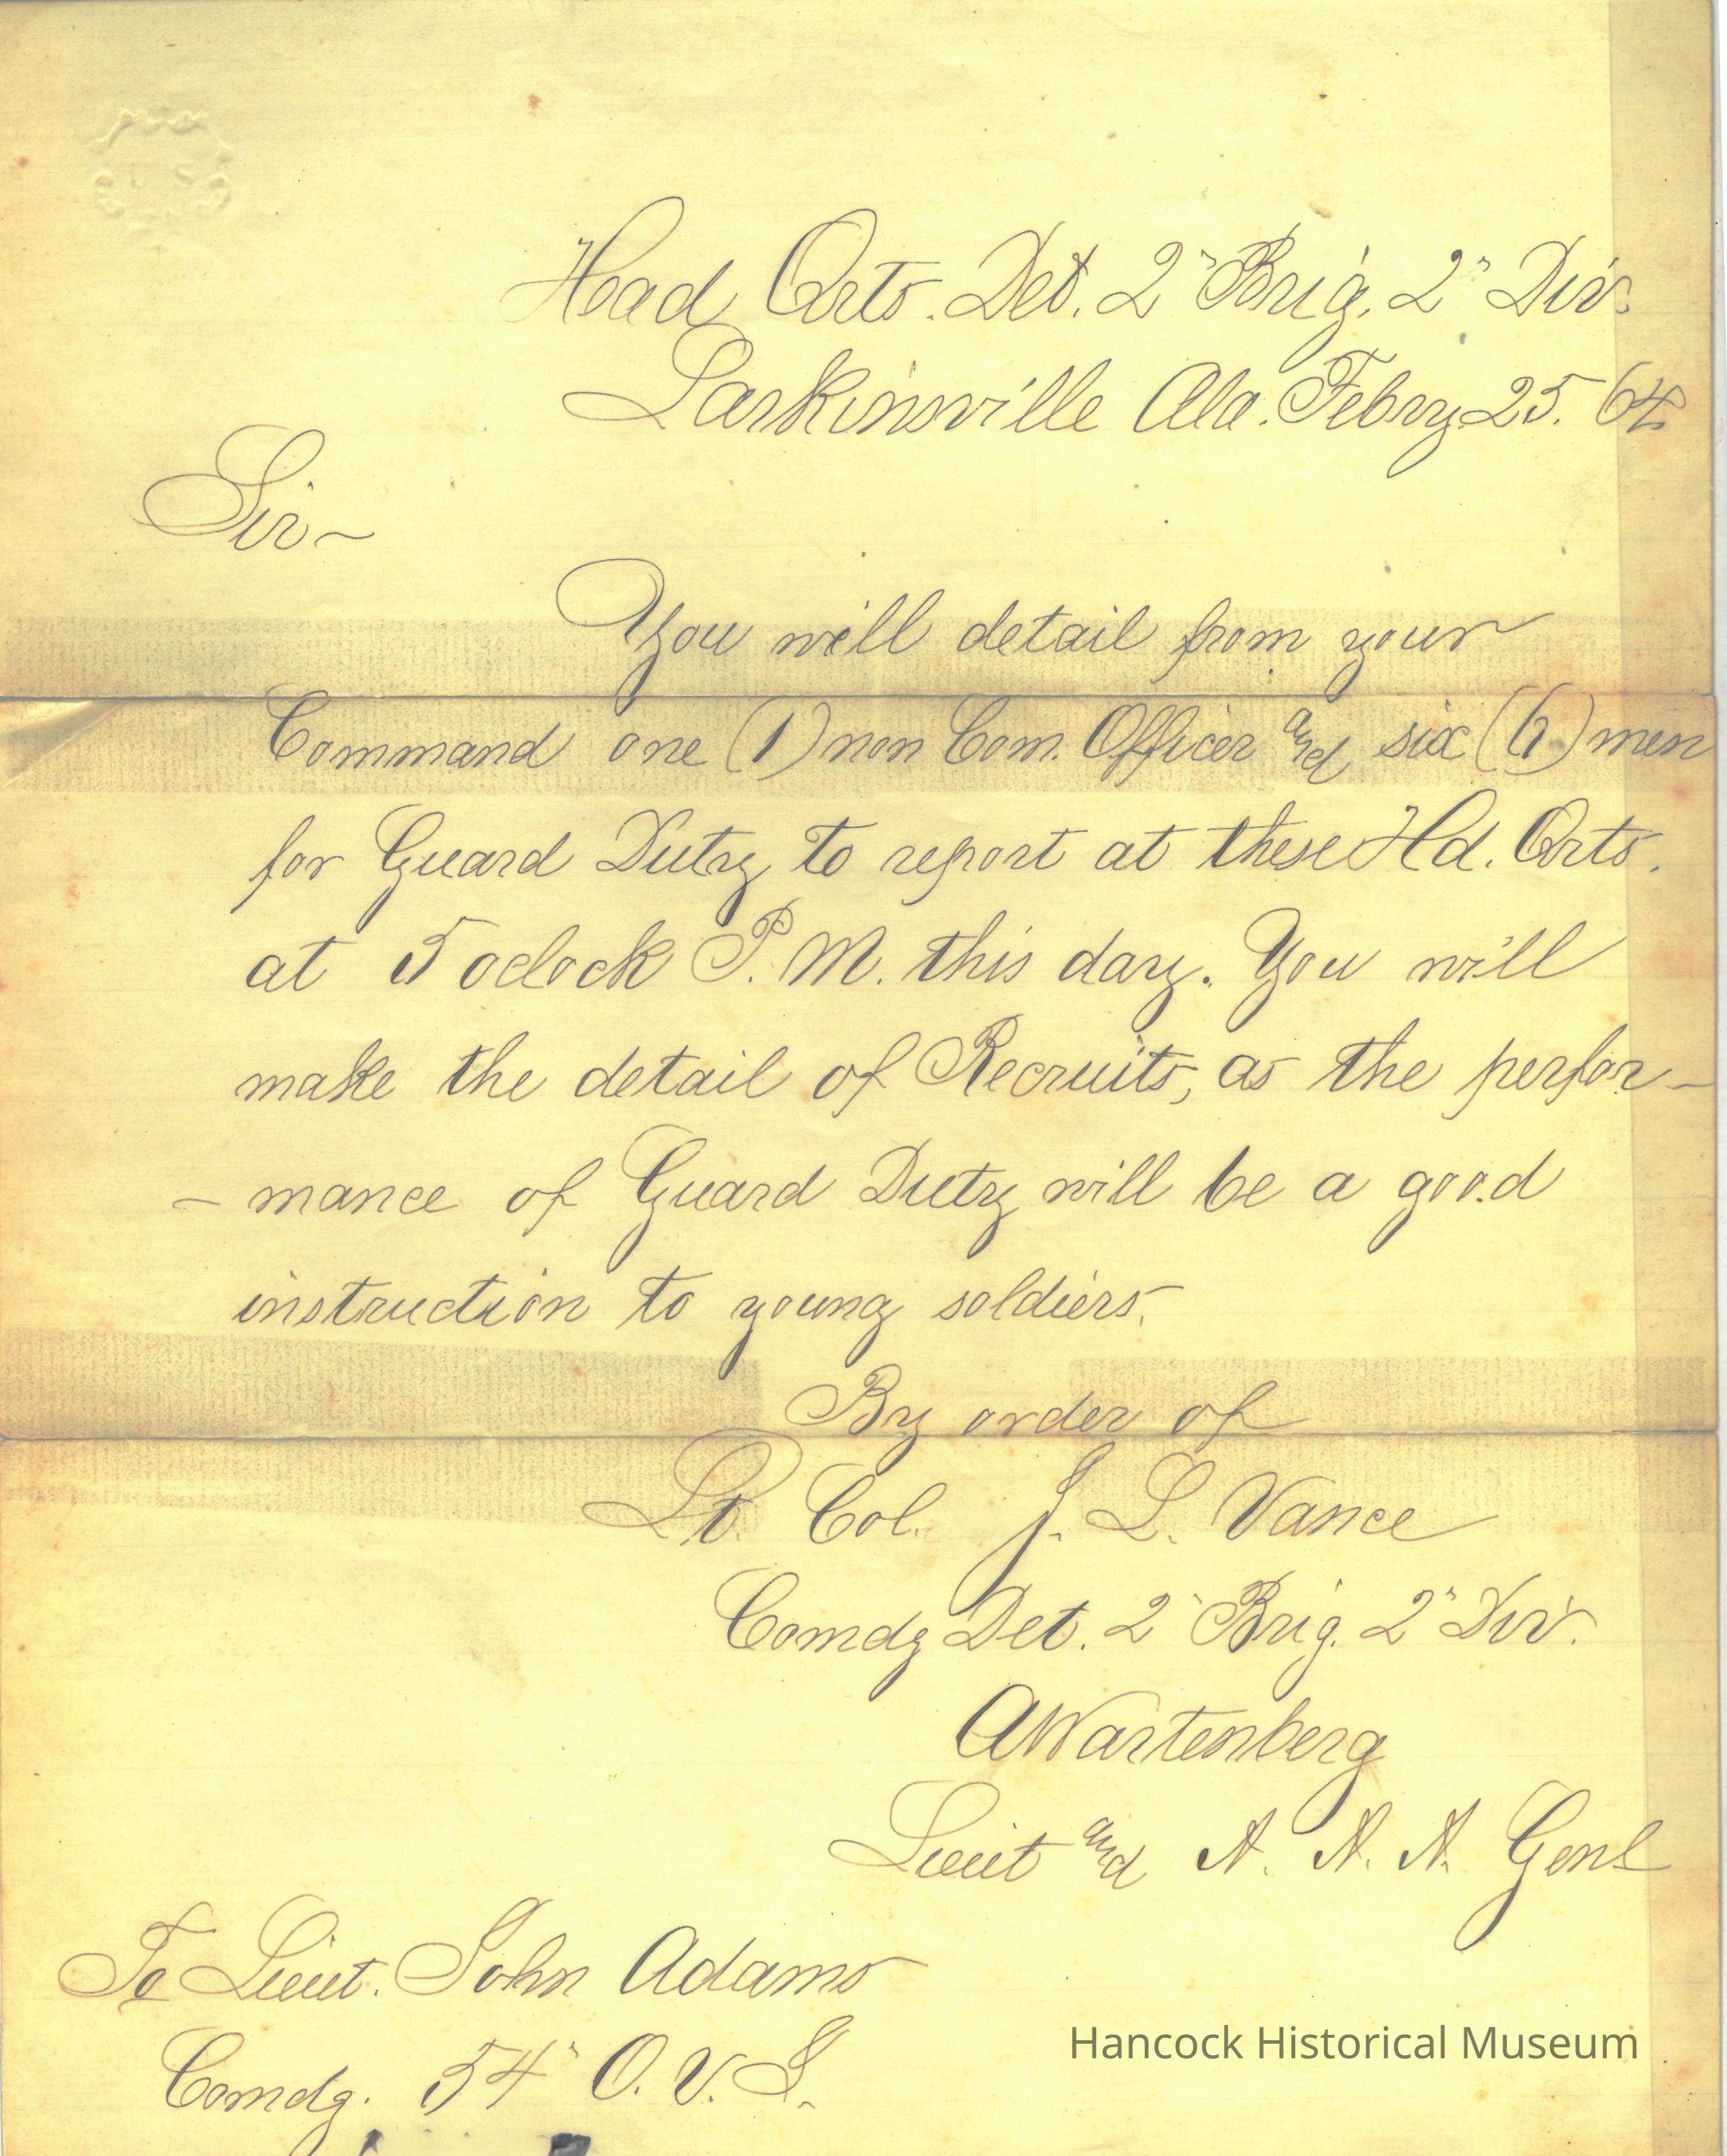 U S
Head Qrts. Det. 2" Brig. 2" Div.
Larkinsville Ala. Febry 25. 64.
Sir ~
You will detail from your
Command one (1) non Com. Officer and six (6) men
for Guard Duty to report at these Hd. Qrts.
at 5 oclock P. M. this day. You will
make the detail of Recruits, as the perfor-
- mance of Guard Duty will be a good
instruction to young soldiers.
By order of
Lt. Col. J. L. Vance
Comdg Det. 2" Brig. 2" Div.
AWartenberg
Lieut and A. A. A. Genl
To Lieut. John Adams
Comdg. 54" O. V. I.
Hancock Historical Museum